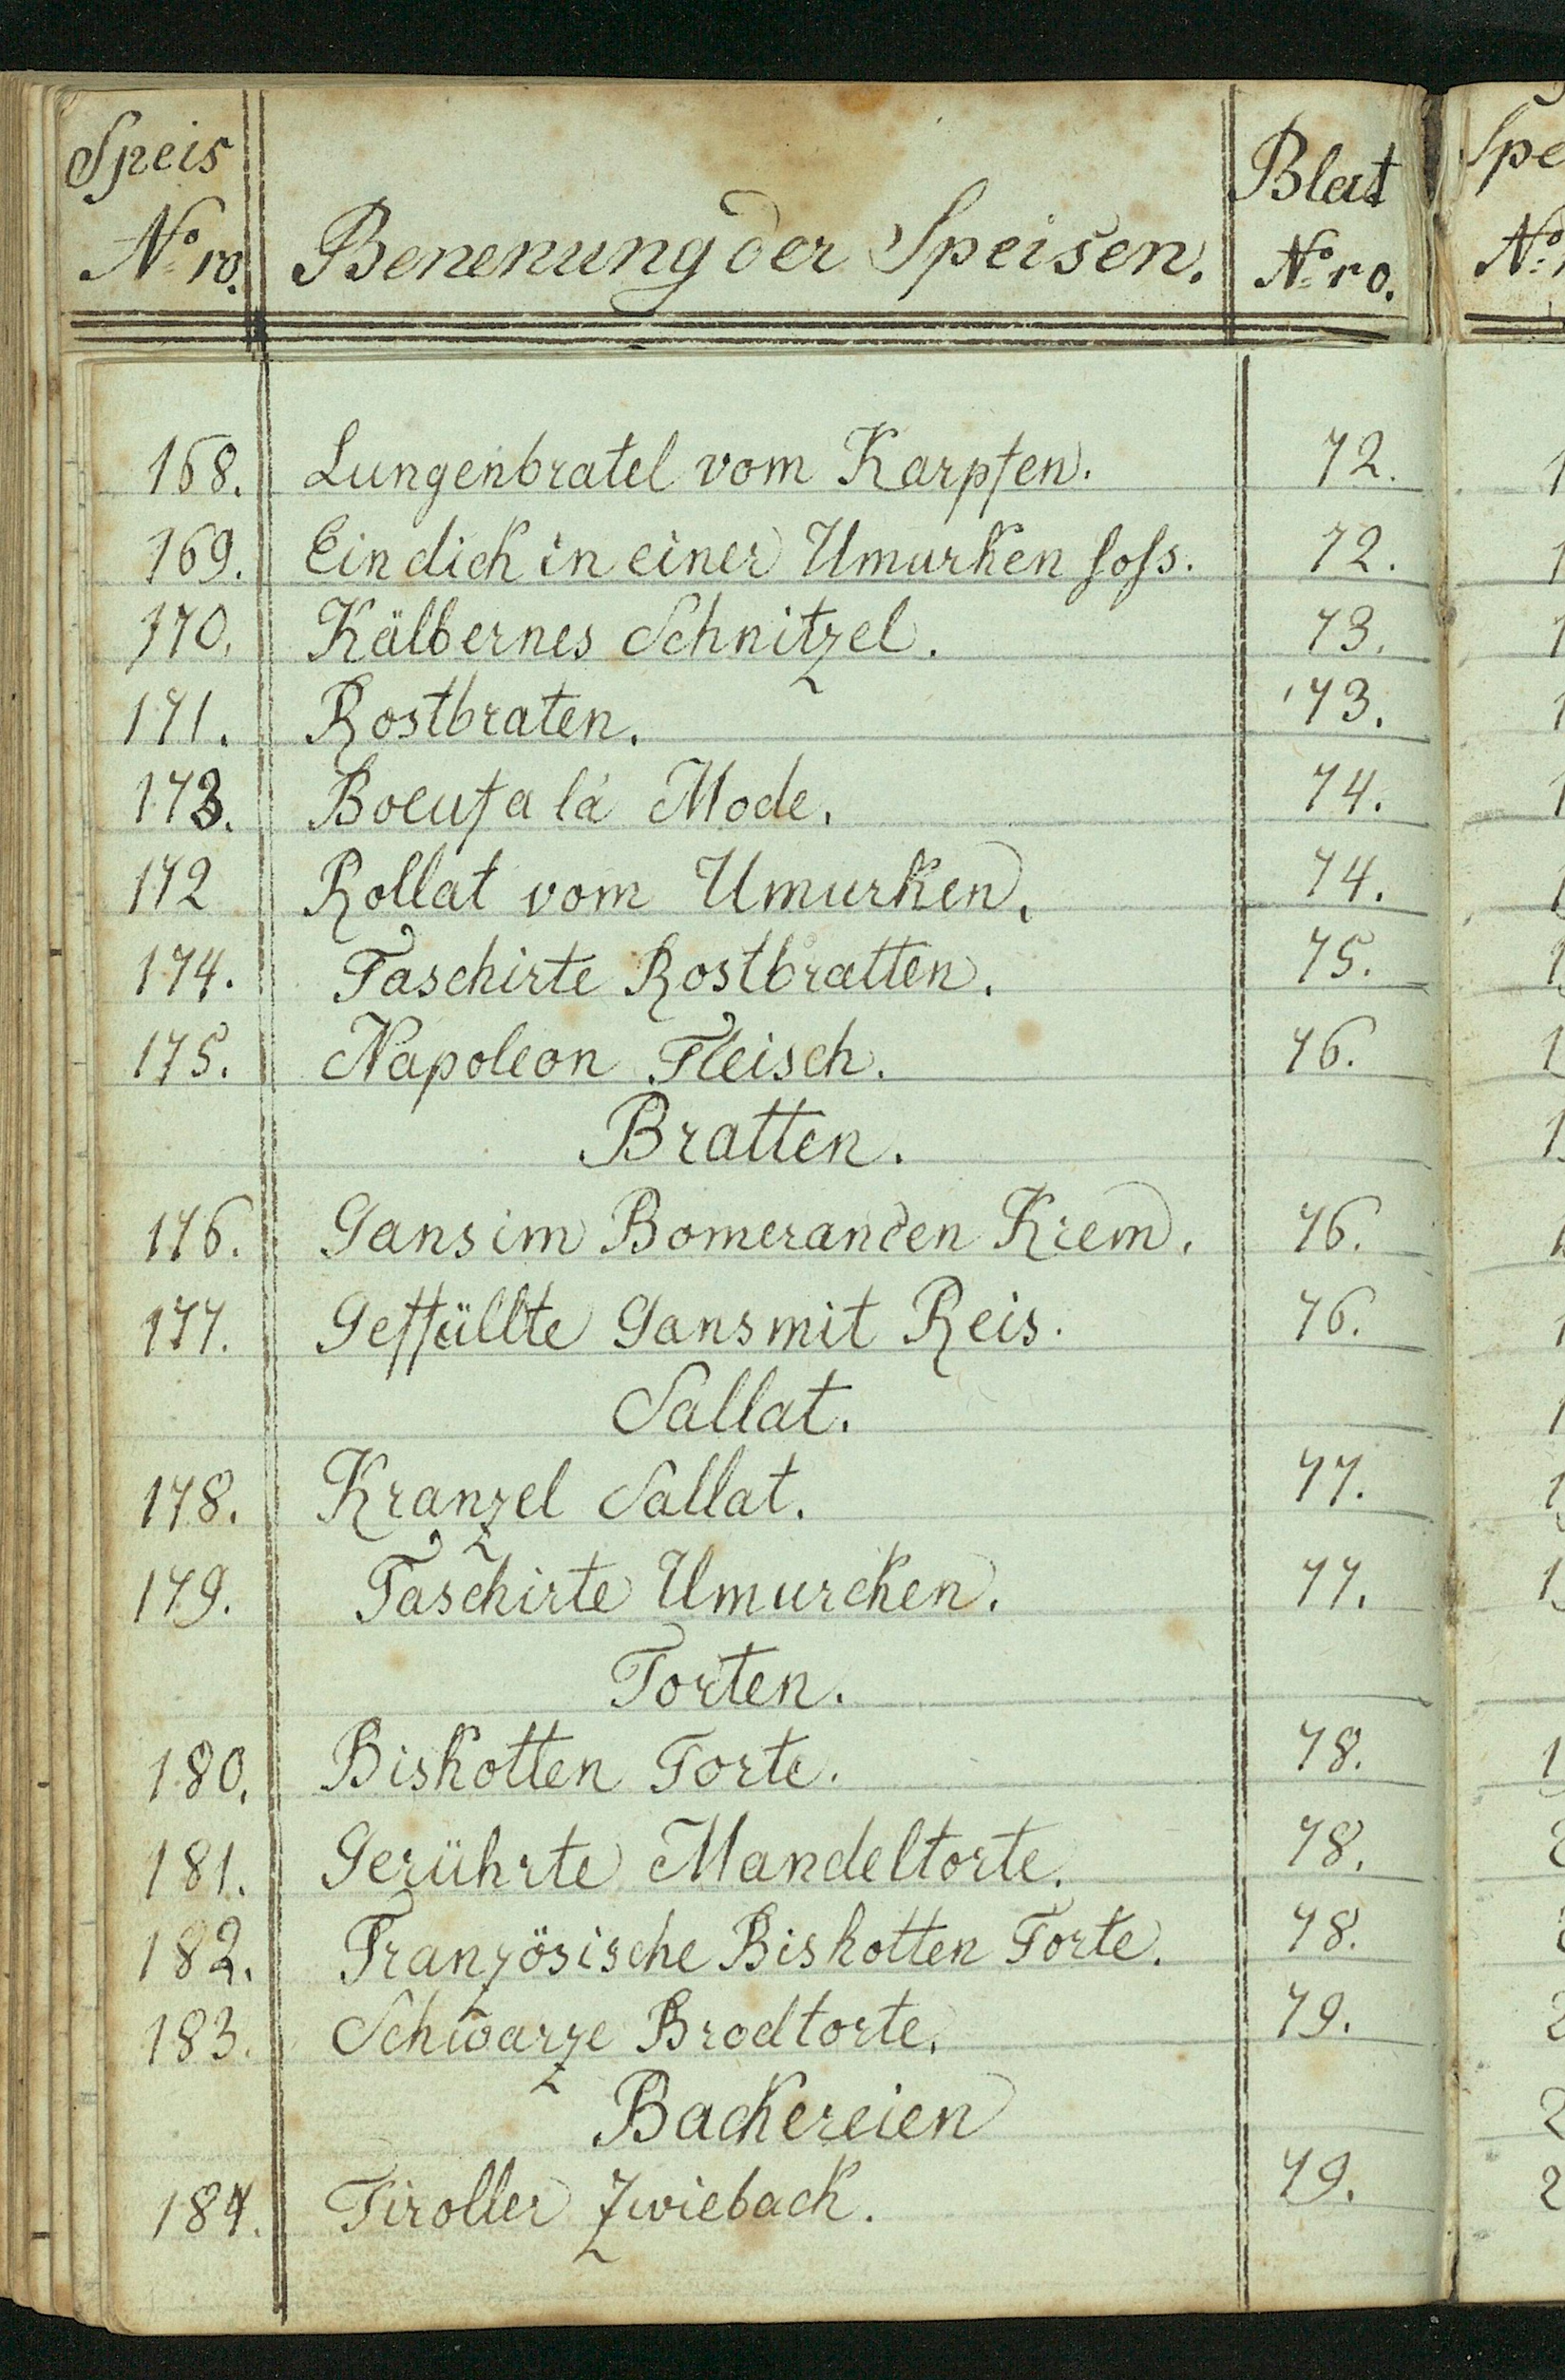 Speis Nº ro. Benenung der Speisen. Blat Nº ro.
168. Lungenbratel vom Karpfen. 72.
169. Ein dick in einer Umurken soss. 72.
170. Kälbernes Schnitzel. 73.
171. Rostbraten. 73.
173. Boeuf a lá Mode. 74.
172 Rollat vom Umurken. 74.
174. Faschirte Rostbratten. 75.
175. Napoleon Fleisch. 76.
Bratten.
176. Gans im Bomeranden Krem. 76.
177. Geffüllte Gans mit Reis. 76.
Sallat.
178. Kranzel Sallat. 77.
179. Faschirte Umurcken. 77.
Torten.
180. Biskotten Torte. 78.
181. Gerührte Mandeltorte. 78.
182. Französische Biskotten Torte. 78.
183. Schwarze Brodtorte. 79.
Backereien
184. Tiroller Zwieback. 79.
Spe
Nº